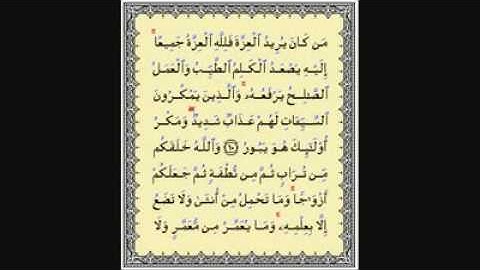 مَن كَانَ يُرِيدُ ٱلْعِزَّةَ فَلِلَّهِ ٱلْعِزَّةُ جَمِيعًا ۚ
إِلَيْهِ يَصْعَدُ ٱلْكَلِمُ ٱلطَّيِّبُ وَٱلْعَمَلُ
ٱلصَّـٰلِحُ يَرْفَعُهُۥ ۚ وَٱلَّذِينَ يَمْكُرُونَ
ٱلسَّيِّـَٔاتِ لَهُمْ عَذَابٌ شَدِيدٌ ۖ وَمَكْرُ
أُو۟لَـٰٓئِكَ هُوَ يَبُورُ ١٠ وَٱللَّهُ خَلَقَكُم
مِّن تُرَابٍ ثُمَّ مِن نُّطْفَةٍ ثُمَّ جَعَلَكُمْ
أَزْوَٰجًا ۚ وَمَا تَحْمِلُ مِنْ أُنثَىٰ وَلَا تَضَعُ
إِلَّا بِعِلْمِهِۦ ۚ وَمَا يُعَمَّرُ مِن مُّعَمَّرٍ وَلَا